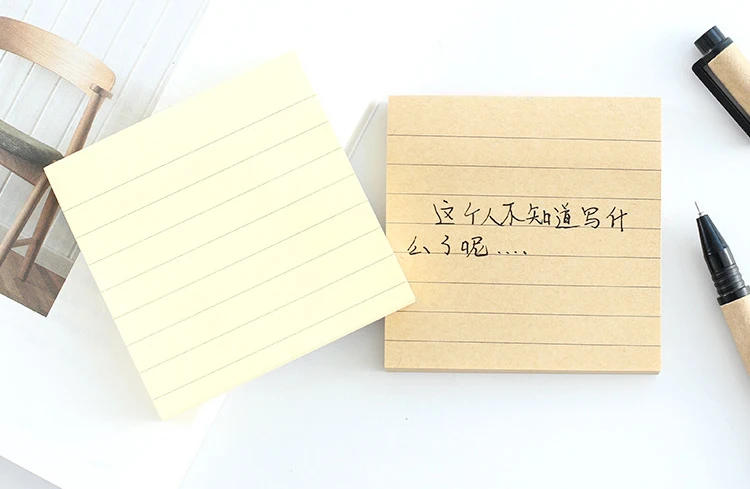 这个人不知道写什
么了呢....